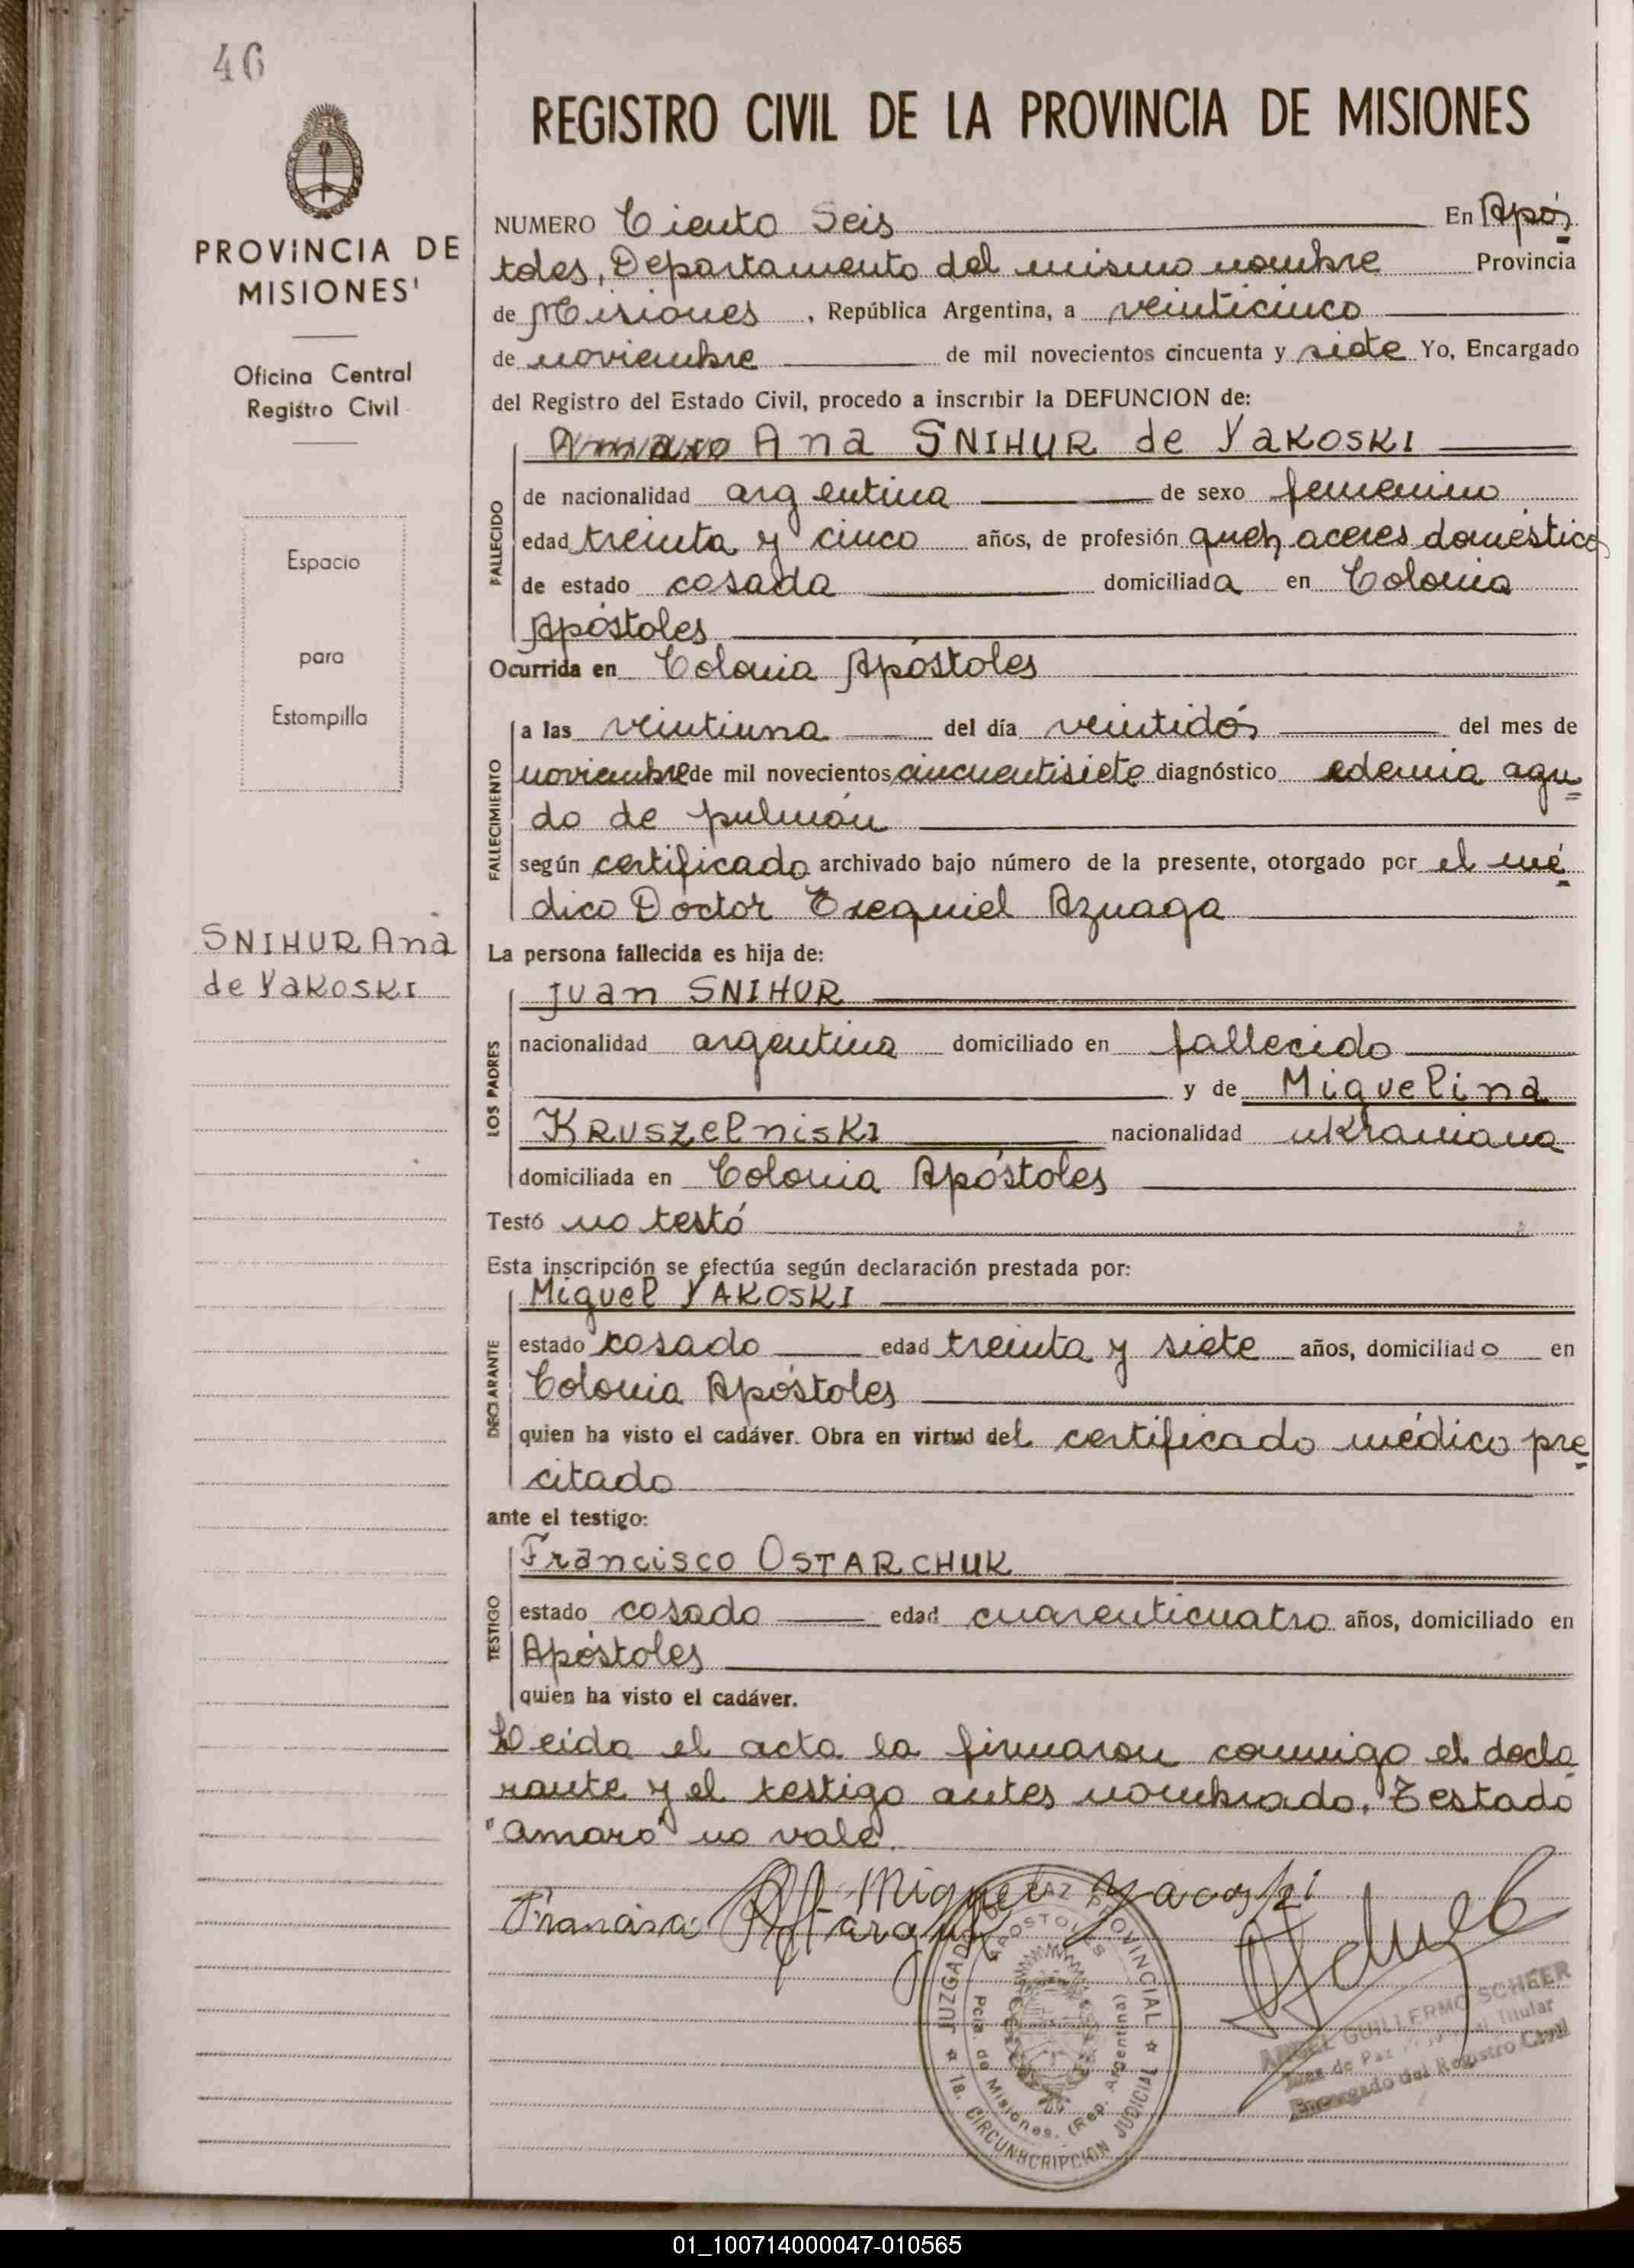 46
PROVINCIA DE
MISIONES
Oficina Central
Registro Civil
Espacio
para
Estampilla
SNIHUR Ana
de YaKosKi
REGISTRO CIVIL DE LA PROVINCIA DE MISIONES
NUMERO Ciento Seis En Após
toles, Departamento del mismo nombre Provincia
de Misiones, República Argentina, a veinticinco
de noviembre de mil novecientos cincuenta y siete Yo, Encargado
del Registro del Estado Civil, procedo a inscribir la DEFUNCION de:
Amaro Ana SNIHUR de YaKosKi
FALLECIDO
de nacionalidad argentina de sexo femenino
edad treinta y cinco años, de profesión quehaceres domésticos
de estado casada domiciliada en Colonia
Apóstoles
Ocurrida en Colonia Apóstoles
FALLECIMIENTO
a las veintiuna del día veintidós del mes de
noviembre de mil novecientos cincuentisiete diagnóstico edemia agu
do de pulmón
según certificado archivado bajo número de la presente, otorgado por el mé
dico Doctor Exequiel Aznaga
La persona fallecida es hija de:
LOS PADRES
Juan SNIHUR
nacionalidad argentina domiciliado en fallecido
y de Miguelina
KRuszelnisKi nacionalidad ukraniana
domiciliada en Colonia Apóstoles
Testó no testó
Esta inscripción se efectúa según declaración prestada por:
DECLARANTE
Miguel YAKOSKI
estado casado edad treinta y siete años, domiciliado en
Colonia Apóstoles
quien ha visto el cadáver. Obra en virtud del certificado médico pre
citado
ante el testigo:
TESTIGO
Francisco OSTARCHUK
estado casado edad cuarenticuatro años, domiciliado en
Apóstoles
quien ha visto el cadáver.
Leida el acta la firmaron conmigo el decla
rante y el testigo antes nombrado. Testado
"amaro" no vale.
Miguel Yacoski
JUZGADO DE PAZ PROVINCIAL
APOSTOLES
Pcia. de Misiones. (Rep. Argentina)
1a. CIRCUNSCRIPCION JUDICIAL
ANGEL GUILLERMO SCHEER
Juez de Paz Titular
Encargado del Registro Civil
01_100714000047-010565